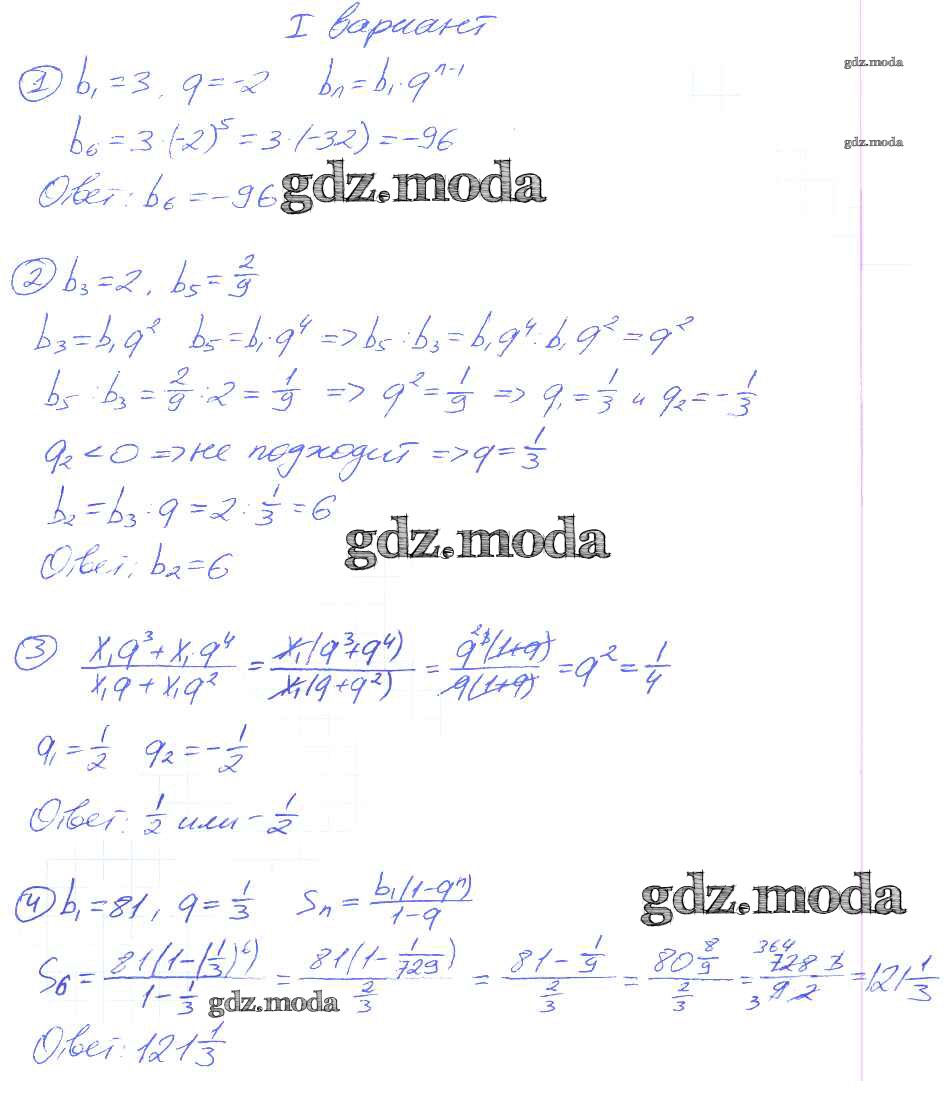 I вариант
① b₁ = 3, q = -2 bₙ = b₁·qⁿ⁻¹
gdz.moda
b₆ = 3·(-2)⁵ = 3·(-32) = -96
gdz.moda
Ответ: b₆ = -96
gdz.moda
② b₃ = 2, b₅ = 2/9
b₃ = b₁q² b₅ = b₁·q⁴ => b₅ : b₃ = b₁q⁴ : b₁q² = q²
b₅ : b₃ = 2/9 : 2 = 1/9 => q² = 1/9 => q₁ = 1/3 и q₂ = -1/3
q₂ < 0 => не подходит => q = 1/3
b₂ = b₃ : q = 2 : 1/3 = 6
gdz.moda
Ответ: b₂ = 6
③ (x₁q³ + x₁·q⁴)/(x₁q + x₁q²) = x₁(q³+q⁴)/x₁(q+q²) = q³(1+q)/q(1+q) = q² = 1/4
q₁ = 1/2 q₂ = -1/2
Ответ: 1/2 или -1/2
gdz.moda
④ b₁ = 81, q = 1/3 Sₙ = b₁(1-qⁿ)/(1-q)
S₆ = 81(1-(1/3)⁶)/(1-1/3) = 81(1-1/729)/(2/3) = (81-1/9)/(2/3) = (80 8/9)/(2/3) = 728·3/9·2 = 121 1/3
gdz.moda
Ответ: 121 1/3